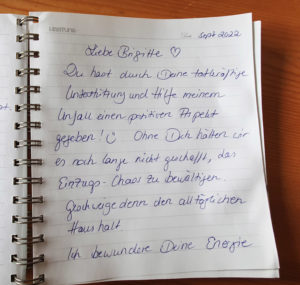 LEUCHTTURM
Sept 2022
Liebe Brigitte ♡
Du hast durch Deine tatkräftige
Unterstützung und Hilfe meinem
Unfall einen positiven Aspekt
gegeben! ☺ Ohne Dich hätten wir
es noch lange nicht geschafft, das
Einzugs-Chaos zu bewältigen.
Geschweige denn den alltäglichen
Haushalt.
Ich bewundere Deine Energie